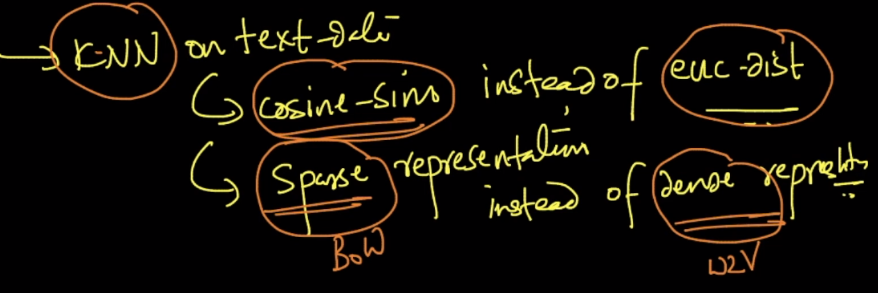 K-NN on text-data
cosine-sim instead of euc-dist
Sparse representation
instead of dense
BOW W2V